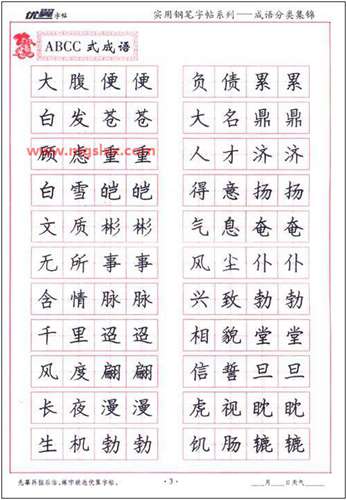 优翼字帖
实用钢笔字帖系列——成语分类集锦
ABCC 式成语
大腹便便
白发苍苍
顾虑重重
白雪皑皑
文质彬彬
无所事事
含情脉脉
千里迢迢
风度翩翩
长夜漫漫
生机勃勃
负债累累
大名鼎鼎
人才济济
得意扬扬
气息奄奄
风尘仆仆
兴致勃勃
相貌堂堂
信誓旦旦
虎视眈眈
饥肠辘辘
·3·
月 日天气